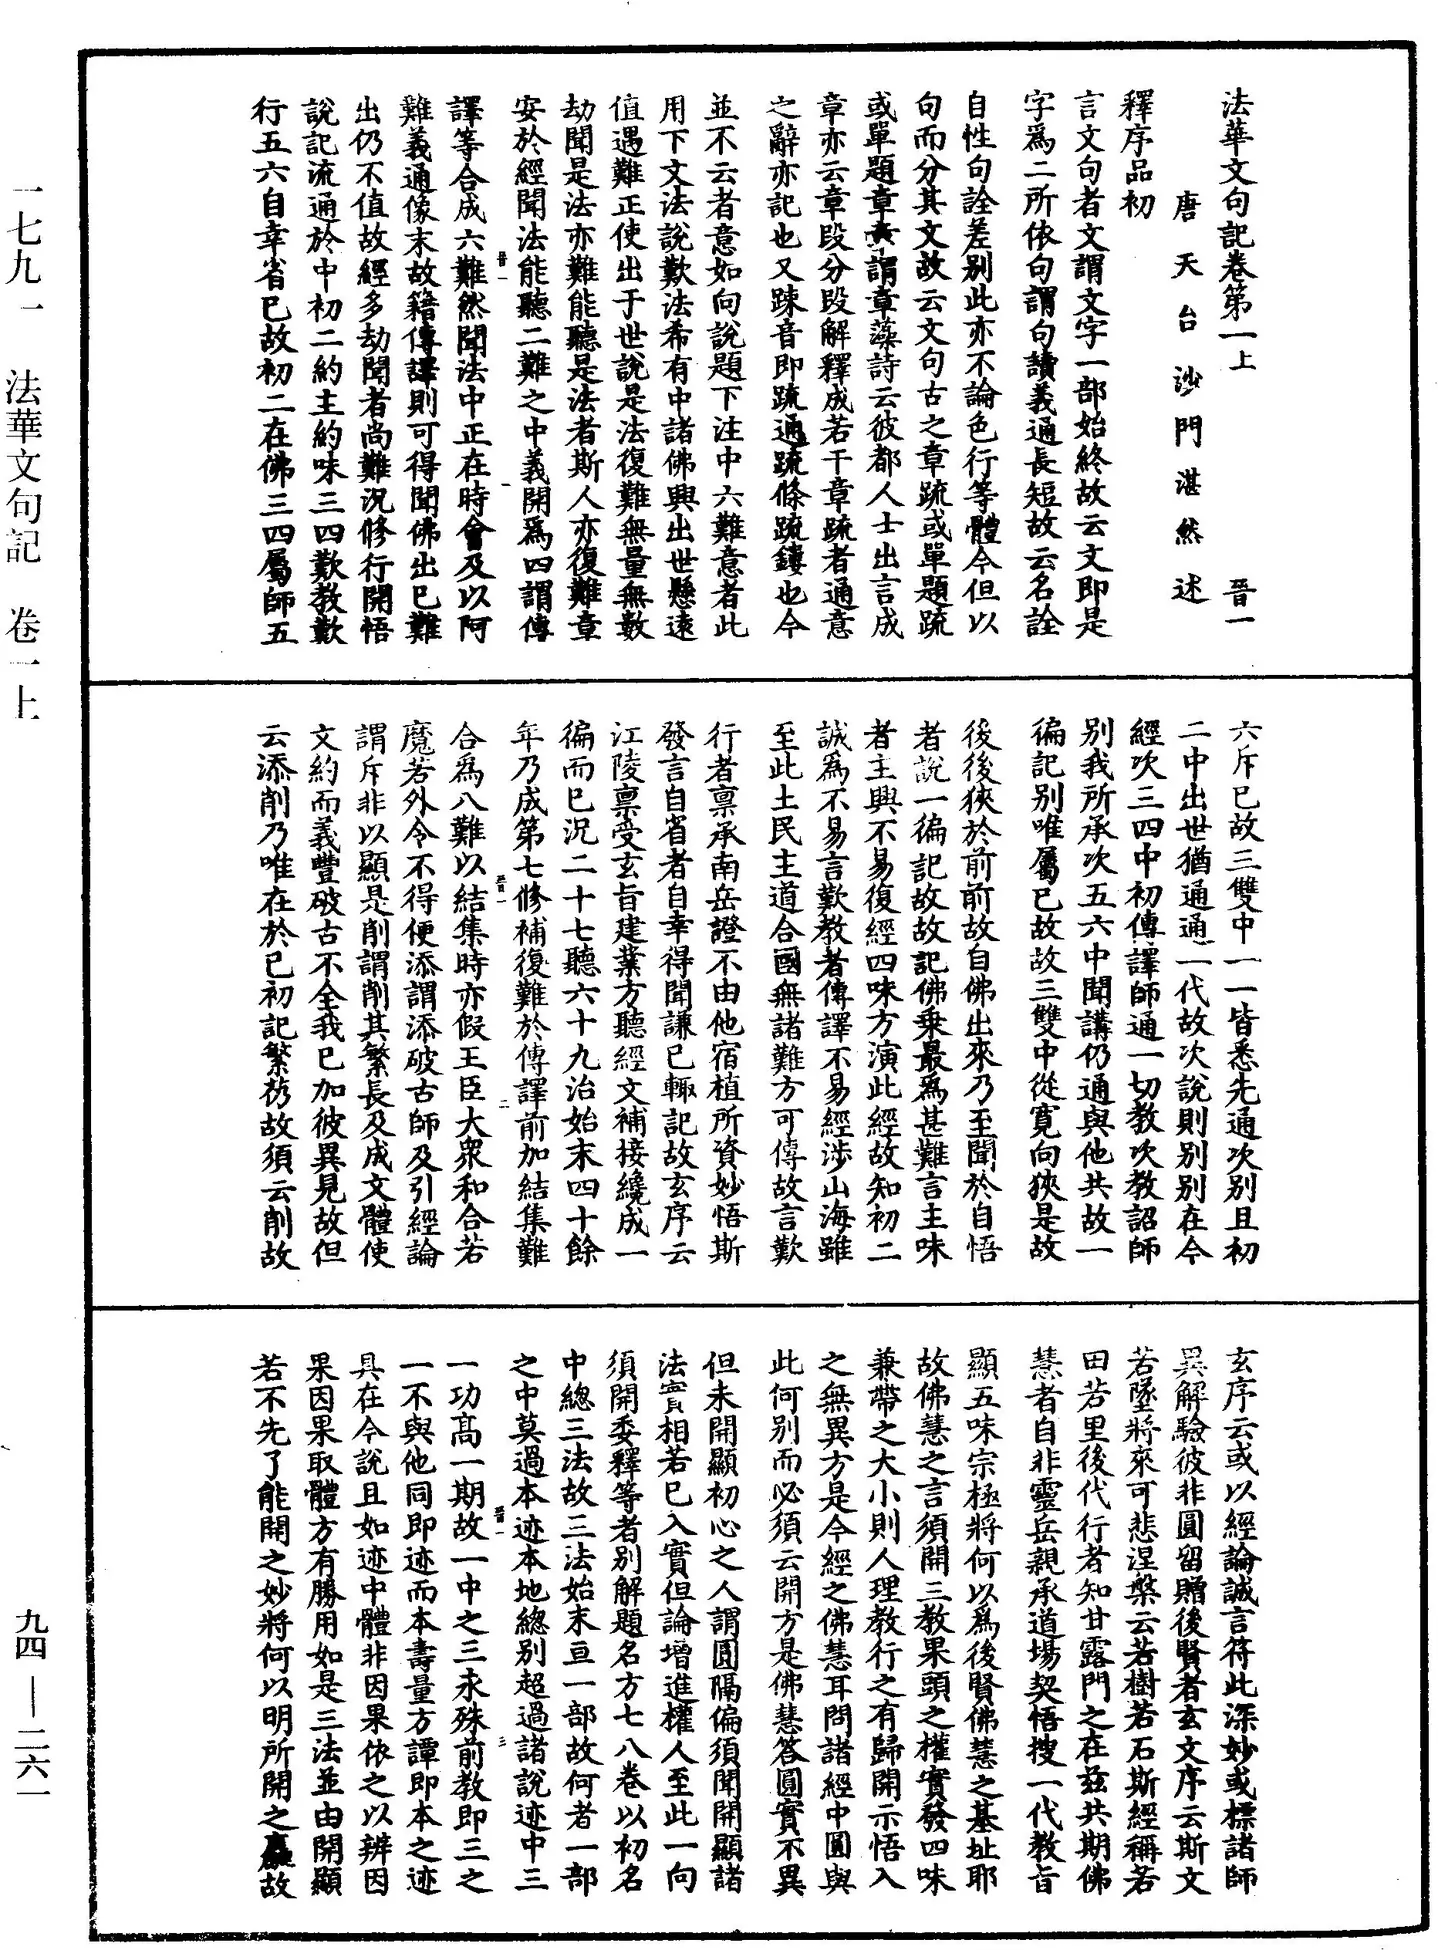 法華文句記卷第一上
晉一
唐天台沙門湛然述
釋序品初
言文句者文謂文字一部始終故云文即是
字爲二所依句謂句讀義通長短故云名詮
自性句詮差別此亦不論色行等體今但以
句而分其文故云文句古之章疏或單題疏
或單題章章謂章藻詩云彼都人士出言成
章亦云章段分段解釋成若干章疏者通意
之辭亦記也又踈音即疏通疏條疏鏤也今
並不云者意如向說題下注中六難意者此
用下文法說歎法希有中諸佛興出世懸遠
值遇難正使出于世說是法復難無量無數
劫聞是法亦難能聽是法者斯人亦復難章
安於經聞法能聽二難之中義開爲四謂傳
譯等合成六難然聞法中正在時會及以阿
難義通像末故籍傳譯則可得聞佛出已難
出仍不值故經多劫聞者尚難況修行開悟
說記流通於中初二約主約味三四歎教歎
行五六自幸省己故初二在佛三四屬師五
六斥已故三雙中一一皆悉先通次別且初
二中出世猶通通一代故次說則別別在今
經次三四中初傳譯師通一切教次教詔師
別我所承次五六中聞講仍通與他共故一
徧記別唯屬已故故三雙中從寬向狹是故
後後狹於前前故自佛出來乃至聞於自悟
者說一徧記故故記佛乗最爲甚難言主味
者主興不易復經四味方演此經故知初二
誠爲不易言歎教者傳譯不易經涉山海雖
至此土民主道合國無諸難方可傳故言歎
行者稟承南岳證不由他宿植所資妙悟斯
發言自省者自幸得聞謙已輙記故玄序云
江陵稟受玄旨建業方聽經文補接纔成一
徧而已況二十七聽六十九治始末四十餘
年乃成第七修補復難於傳譯前加結集難
合爲八難以結集時亦假王臣大衆和合若
魔若外令不得便添謂添破古師及引經論
謂斥非以顯是削謂削其繁長及成文體使
文約而義豐破古不全我已加彼異見故但
云添削乃唯在於已初記繁芿故須云削故
玄序云或以經論誠言符此深妙或標諸師
異解驗彼非圓留贈後賢者玄文序云斯文
若墜將來可悲涅槃云若樹若石斯經稱若
田若里後代行者知甘露門之在兹共期佛
慧者自非靈岳親承道場契悟搜一代教旨
顯五味宗極將何以爲後賢佛慧之基址耶
故佛慧之言須開三教果頭之權實發四味
兼帶之大小則人理教行之有歸開示悟入
之無異方是今經之佛慧耳問諸經中圓與
此何別而必須云開方是佛慧答圓實不異
但未開顯初心之人謂圓隔偏須聞開顯諸
法實相若已入實但論增進權人至此一向
須開委釋等者別解題名方七八卷以初名
中總三法故三法始末亘一部故何者一部
之中莫過本迹本地總別超過諸說迹中三
一功高一期故一中之三永殊前教即三之
一不與他同即迹而本壽量方譚即本之迹
具在今說且如迹中體非因果依之以辨因
果因果取體方有勝用如是三法並由開顯
若不先了能開之妙將何以明所開之麤故
一七九一 法華文句記 卷一上
九四——二六一